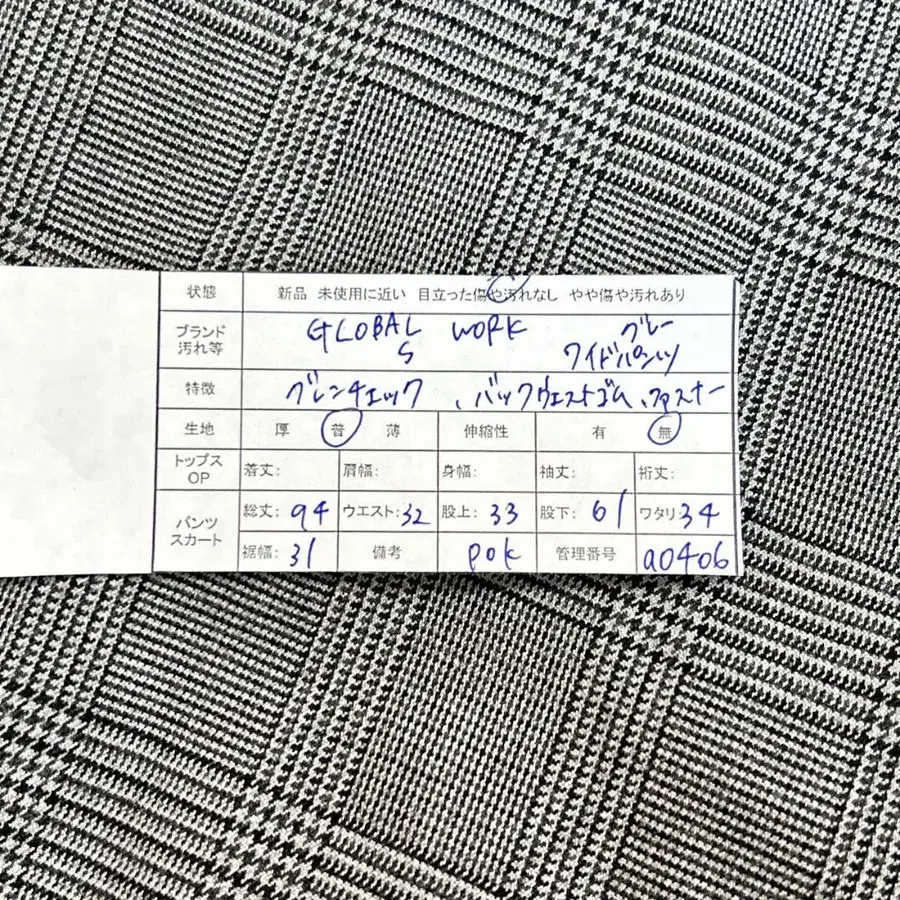 状態 新品 未使用に近い 目立った傷や汚れなし やや傷や汚れあり
ブランド 汚れ等 GLOBAL WORK グレー
S ワイドパンツ
特徴 グレンチェック、バックウエストゴム、ファスナー
生地 厚 普 薄 伸縮性 有 無
トップス OP 着丈: 肩幅: 身幅: 袖丈: 裄丈:
パンツ スカート 総丈: 94 ウエスト: 32 股上: 33 股下: 61 ワタリ 34
裾幅: 31 備考 pok 管理番号 a0406